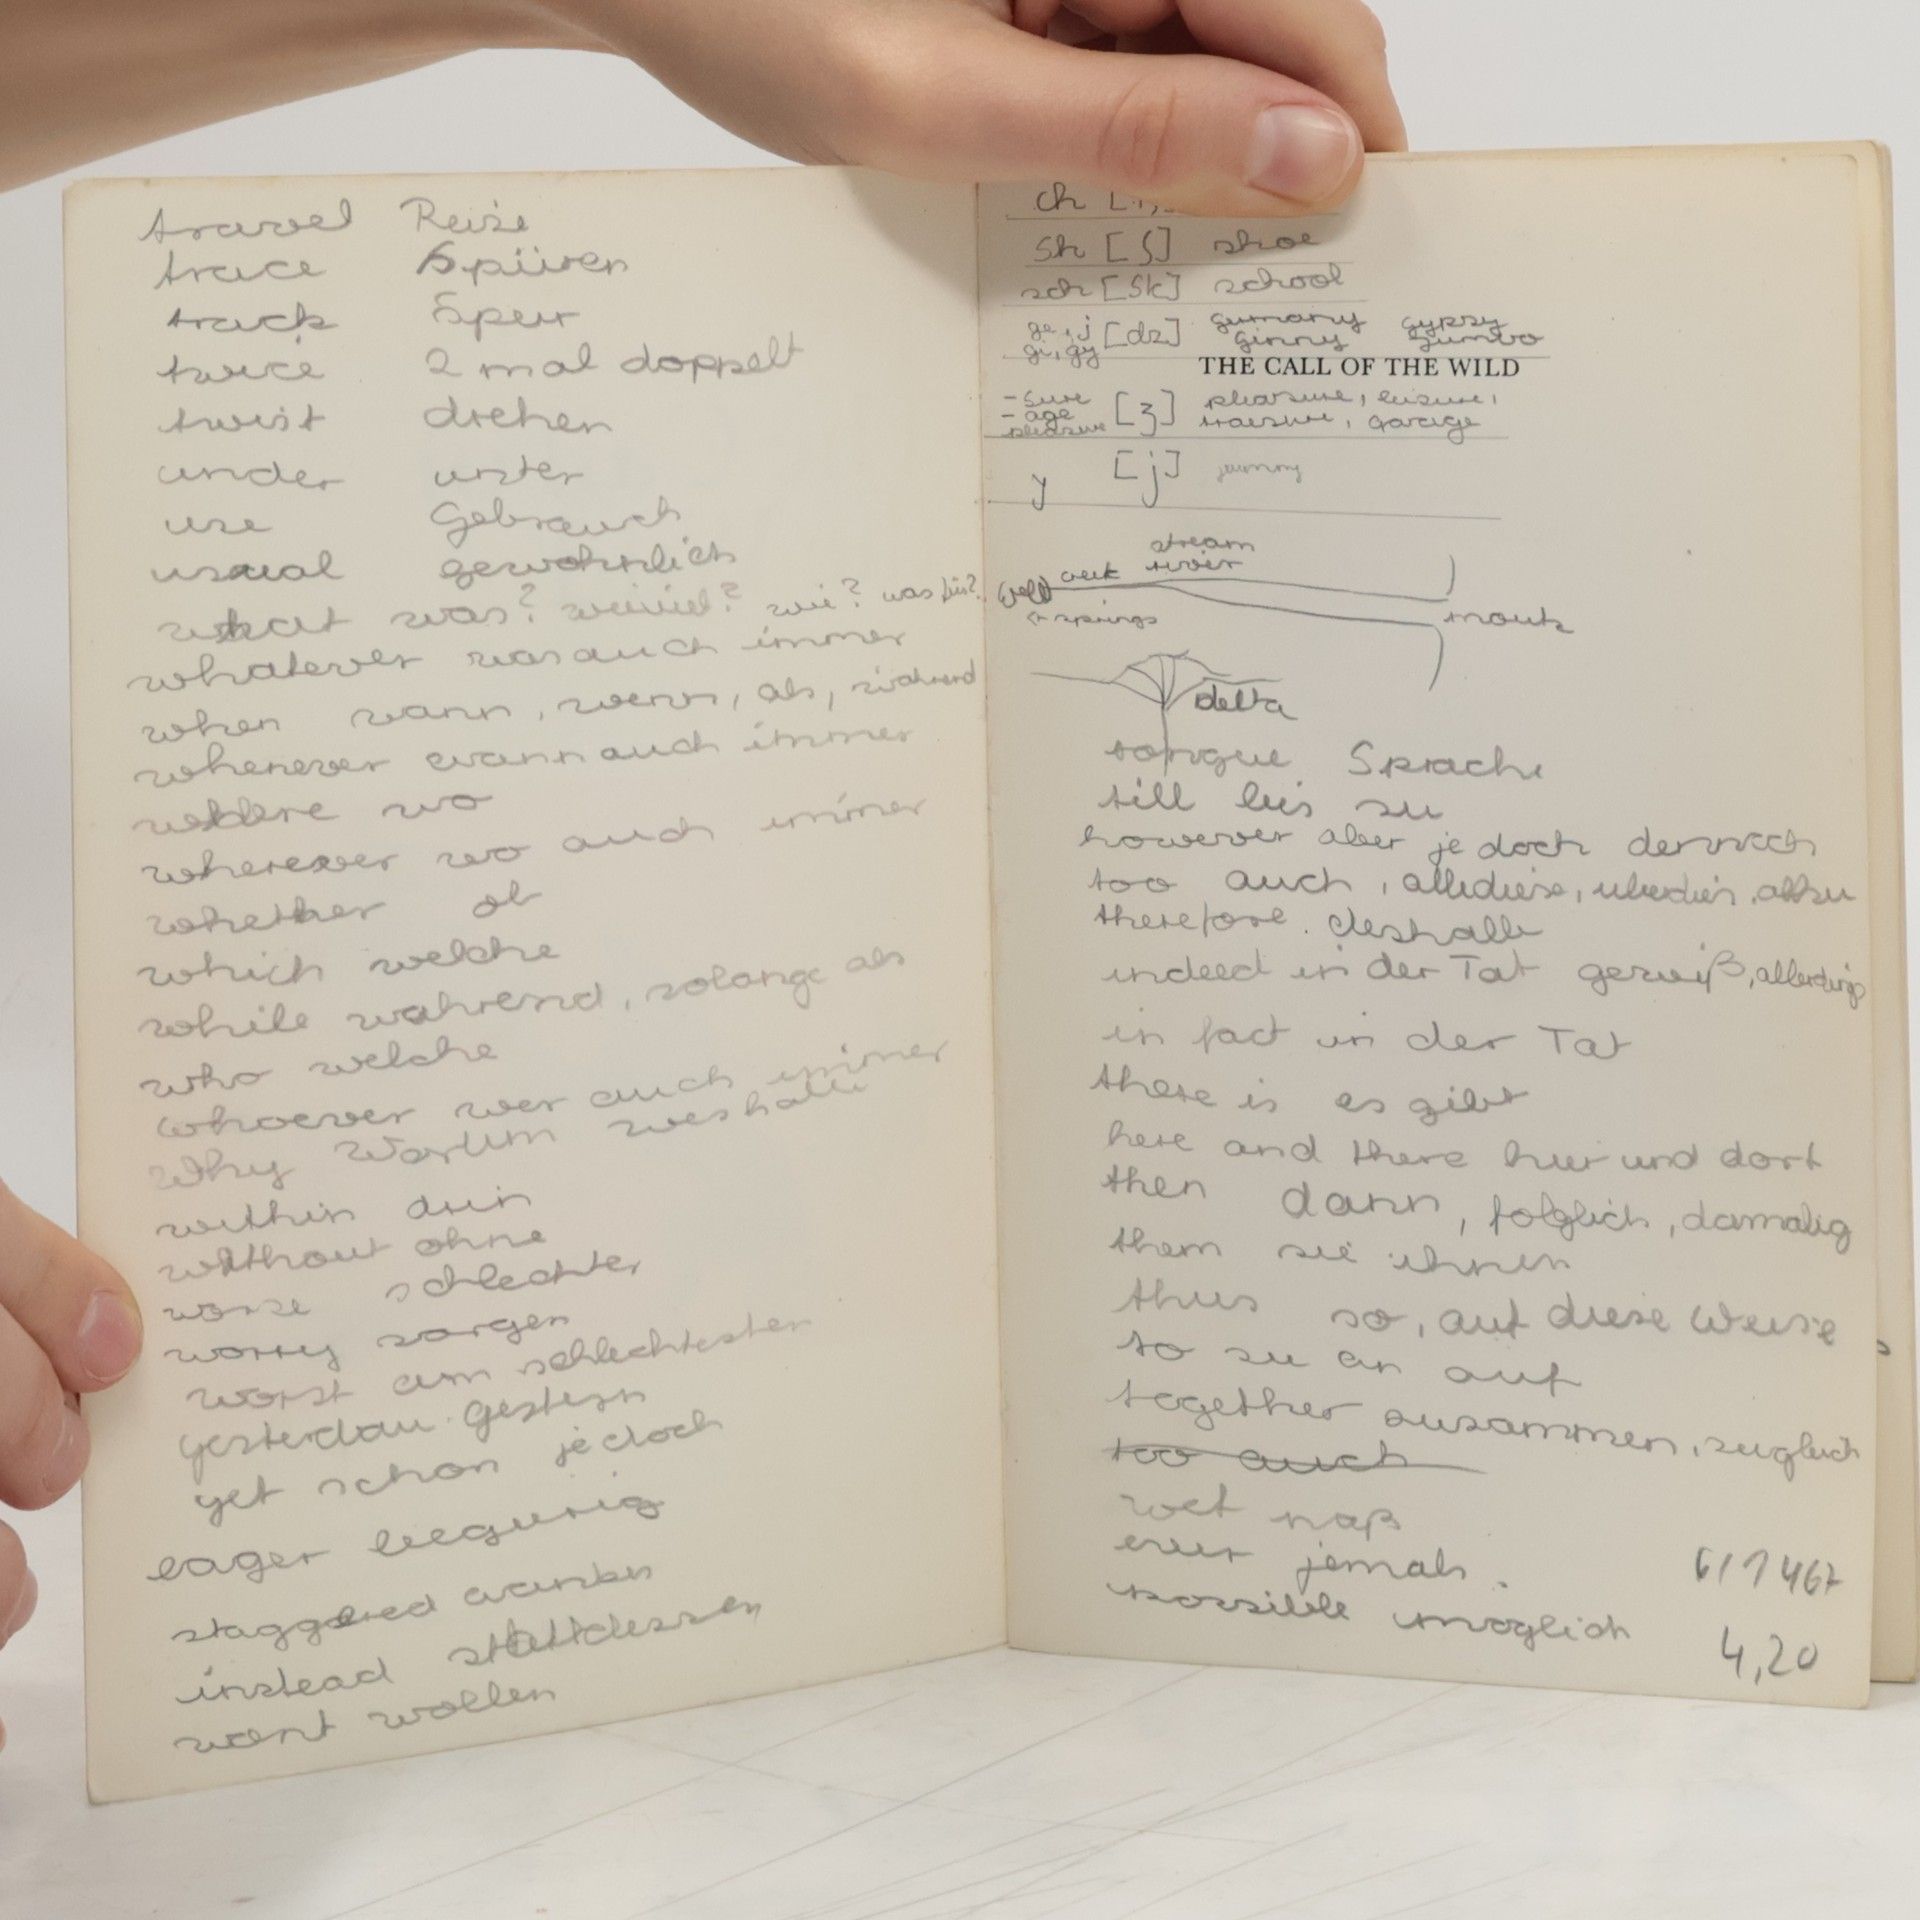 travel Reise
trace spüren
track Spur
twice 2 mal doppelt
twist drehen
under unter
use Gebrauch
usual gewöhnlich
what was? wieviel? wie? was für?
whatever was auch immer
when wann, wenn, als, während
whenever wann auch immer
where wo
wherever wo auch immer
whether ob
which welche
while während, solange als
who welche
whoever wer auch immer
why warum weshalb
within drin
without ohne
worse schlechter
worry sorgen
worst am schlechtesten
yesterday gestern
yet schon jedoch
eager begierig
staggered
instead stattdessen
want wollen
ch
sh [ʃ] shoe
sch [sk] school
ge, j [dz] germany gypsy
gi, gy ginny jumbo
THE CALL OF THE WILD
-sure [ʒ] pleasure, leisure,
-age treasure, garage
pleasure
y [j]
stream
river
springs
mouth
delta
tongue Sprache
till bis zu
however aber jedoch dennoch
too auch, überdies, allzu
therefore deshalb
indeed in der Tat gewiß, allerdings
in fact in der Tat
there is es gibt
here and there hier und dort
then dann, folglich, damalig
them sie ihnen
thus so, auf diese Weise
to zu an auf
together zusammen, zugleich
too auch
wet naß
ever jemals
possible möglich
4,20